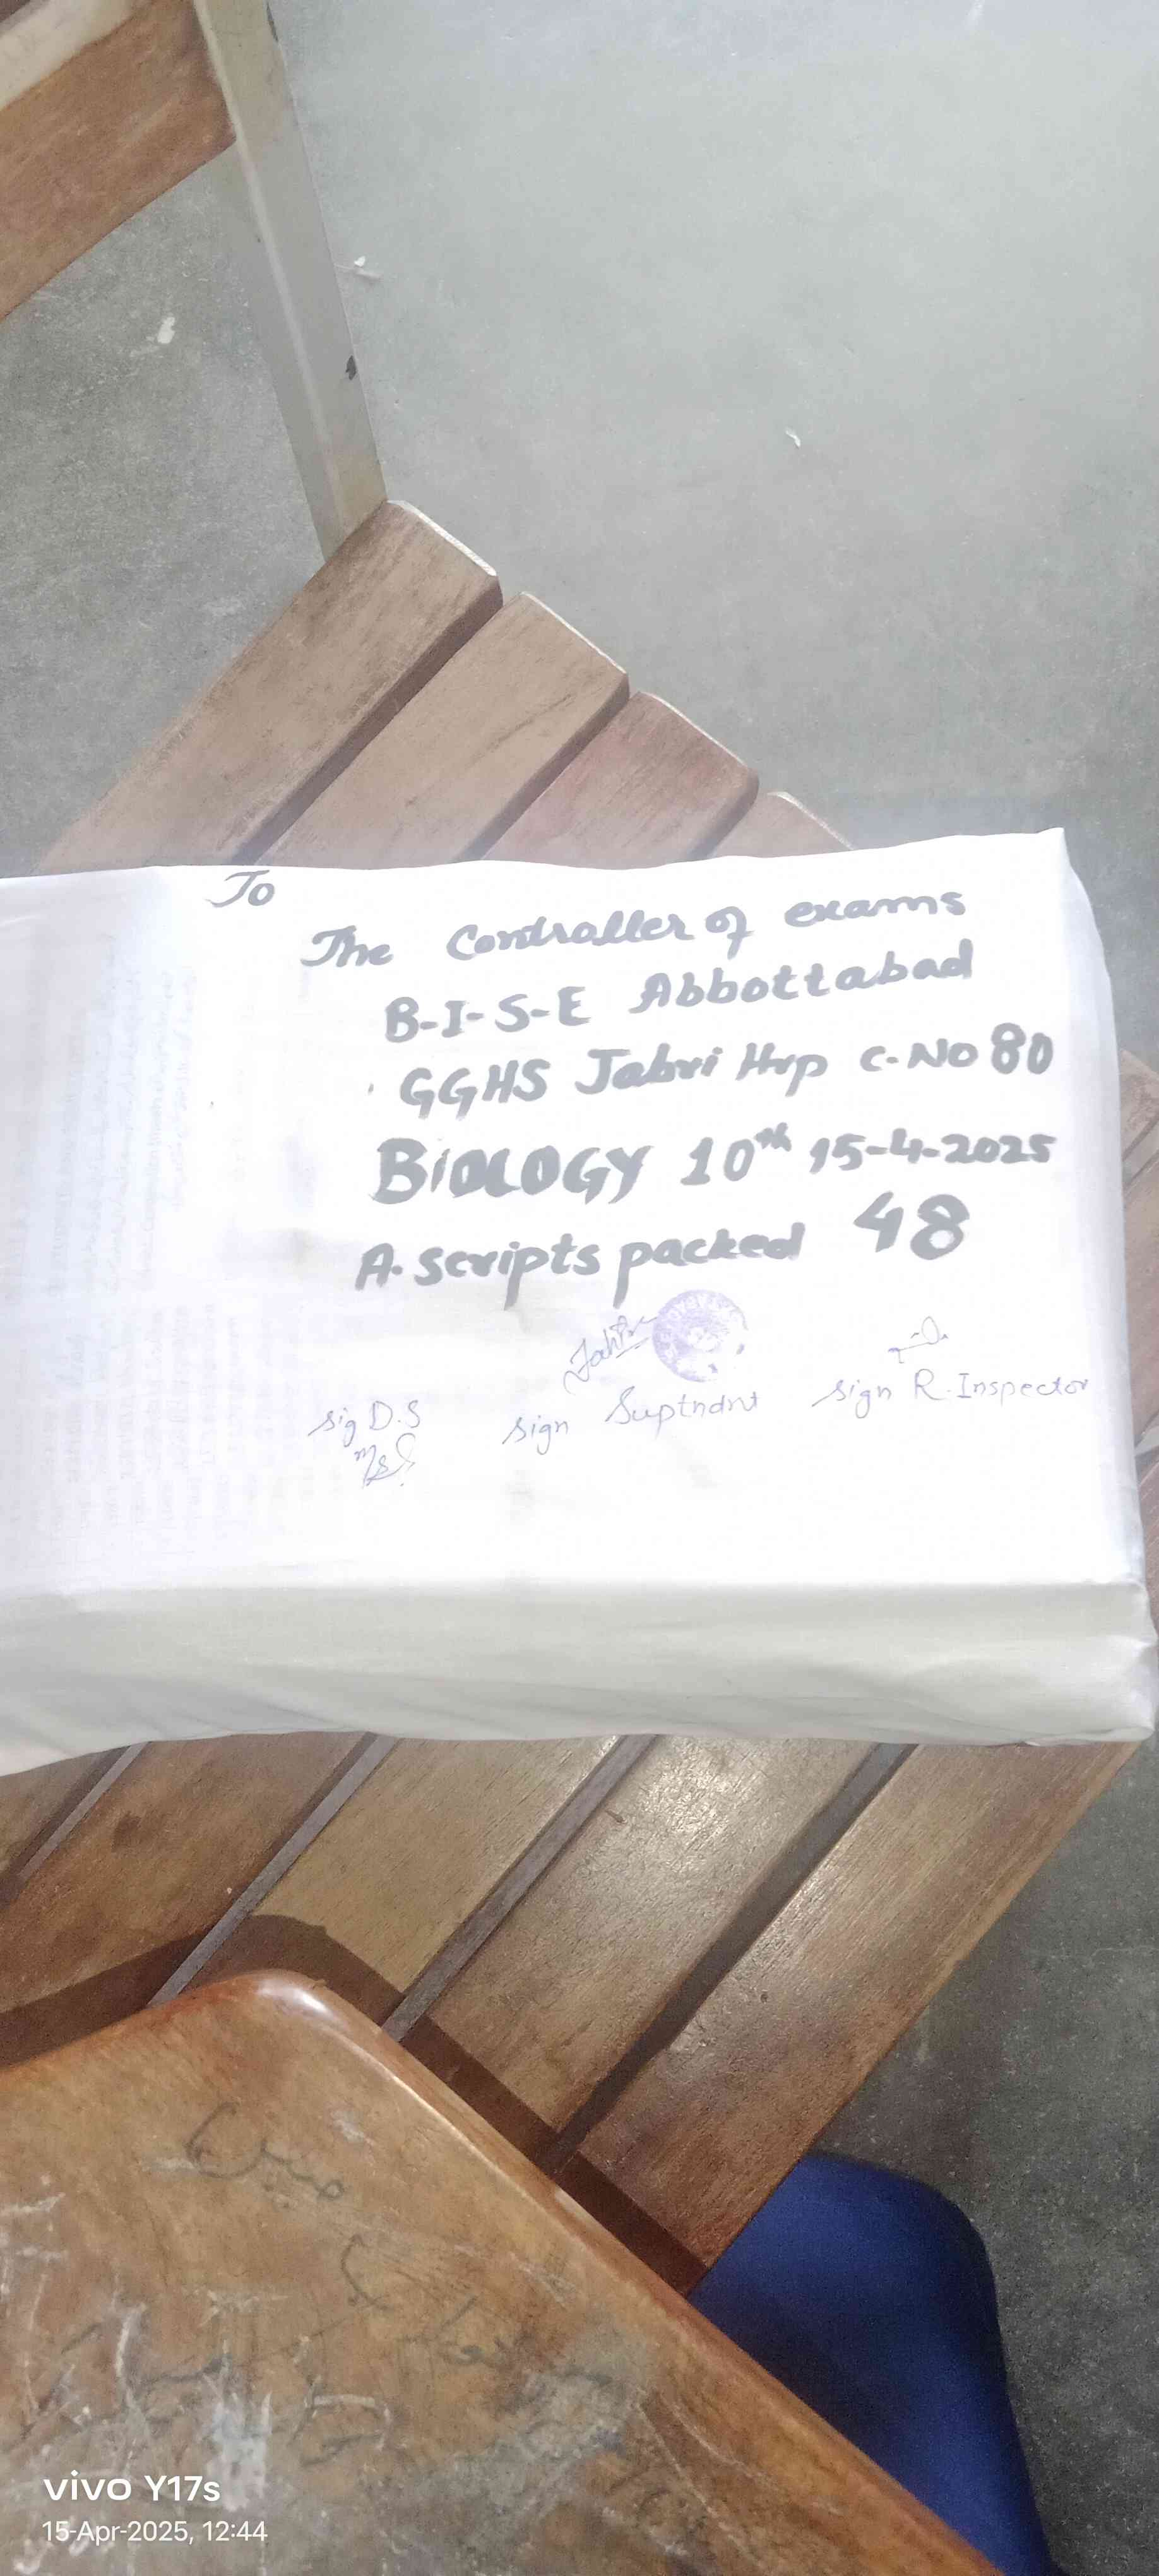 To
The Controller of exams
B-I-S-E Abbottabad
GGHS Jabri Hrp C-No 80
BiOLOGY 10th 15-4-2025
A. scripts packed 48
sig D.S
sign Suptndnt
sign R.Inspector
vivo Y17s
15-Apr-2025, 12:44